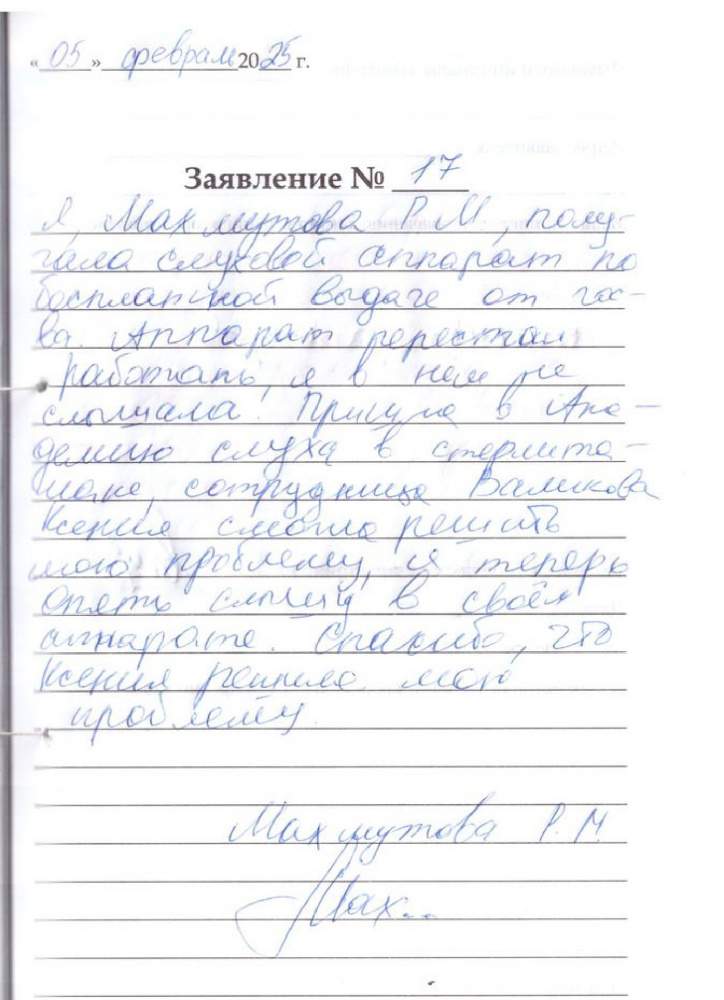 «05» февраля 2025 г.
Заявление № 17
Я, Махмутова Р. М, полу-
чала слуховой аппарат по
бесплатной выдаче от гос-
ва. Аппарат перестал
работать, я в нем не
слышала. Пришла в Ака-
демию слуха в стерлита-
маке, сотрудница Валикова
Ксения смогла решить
мою проблему, и теперь
опять слышу в своём
аппарате. Спасибо, что
Ксения решила мою
проблему.
Махмутова Р. М.
Мах...